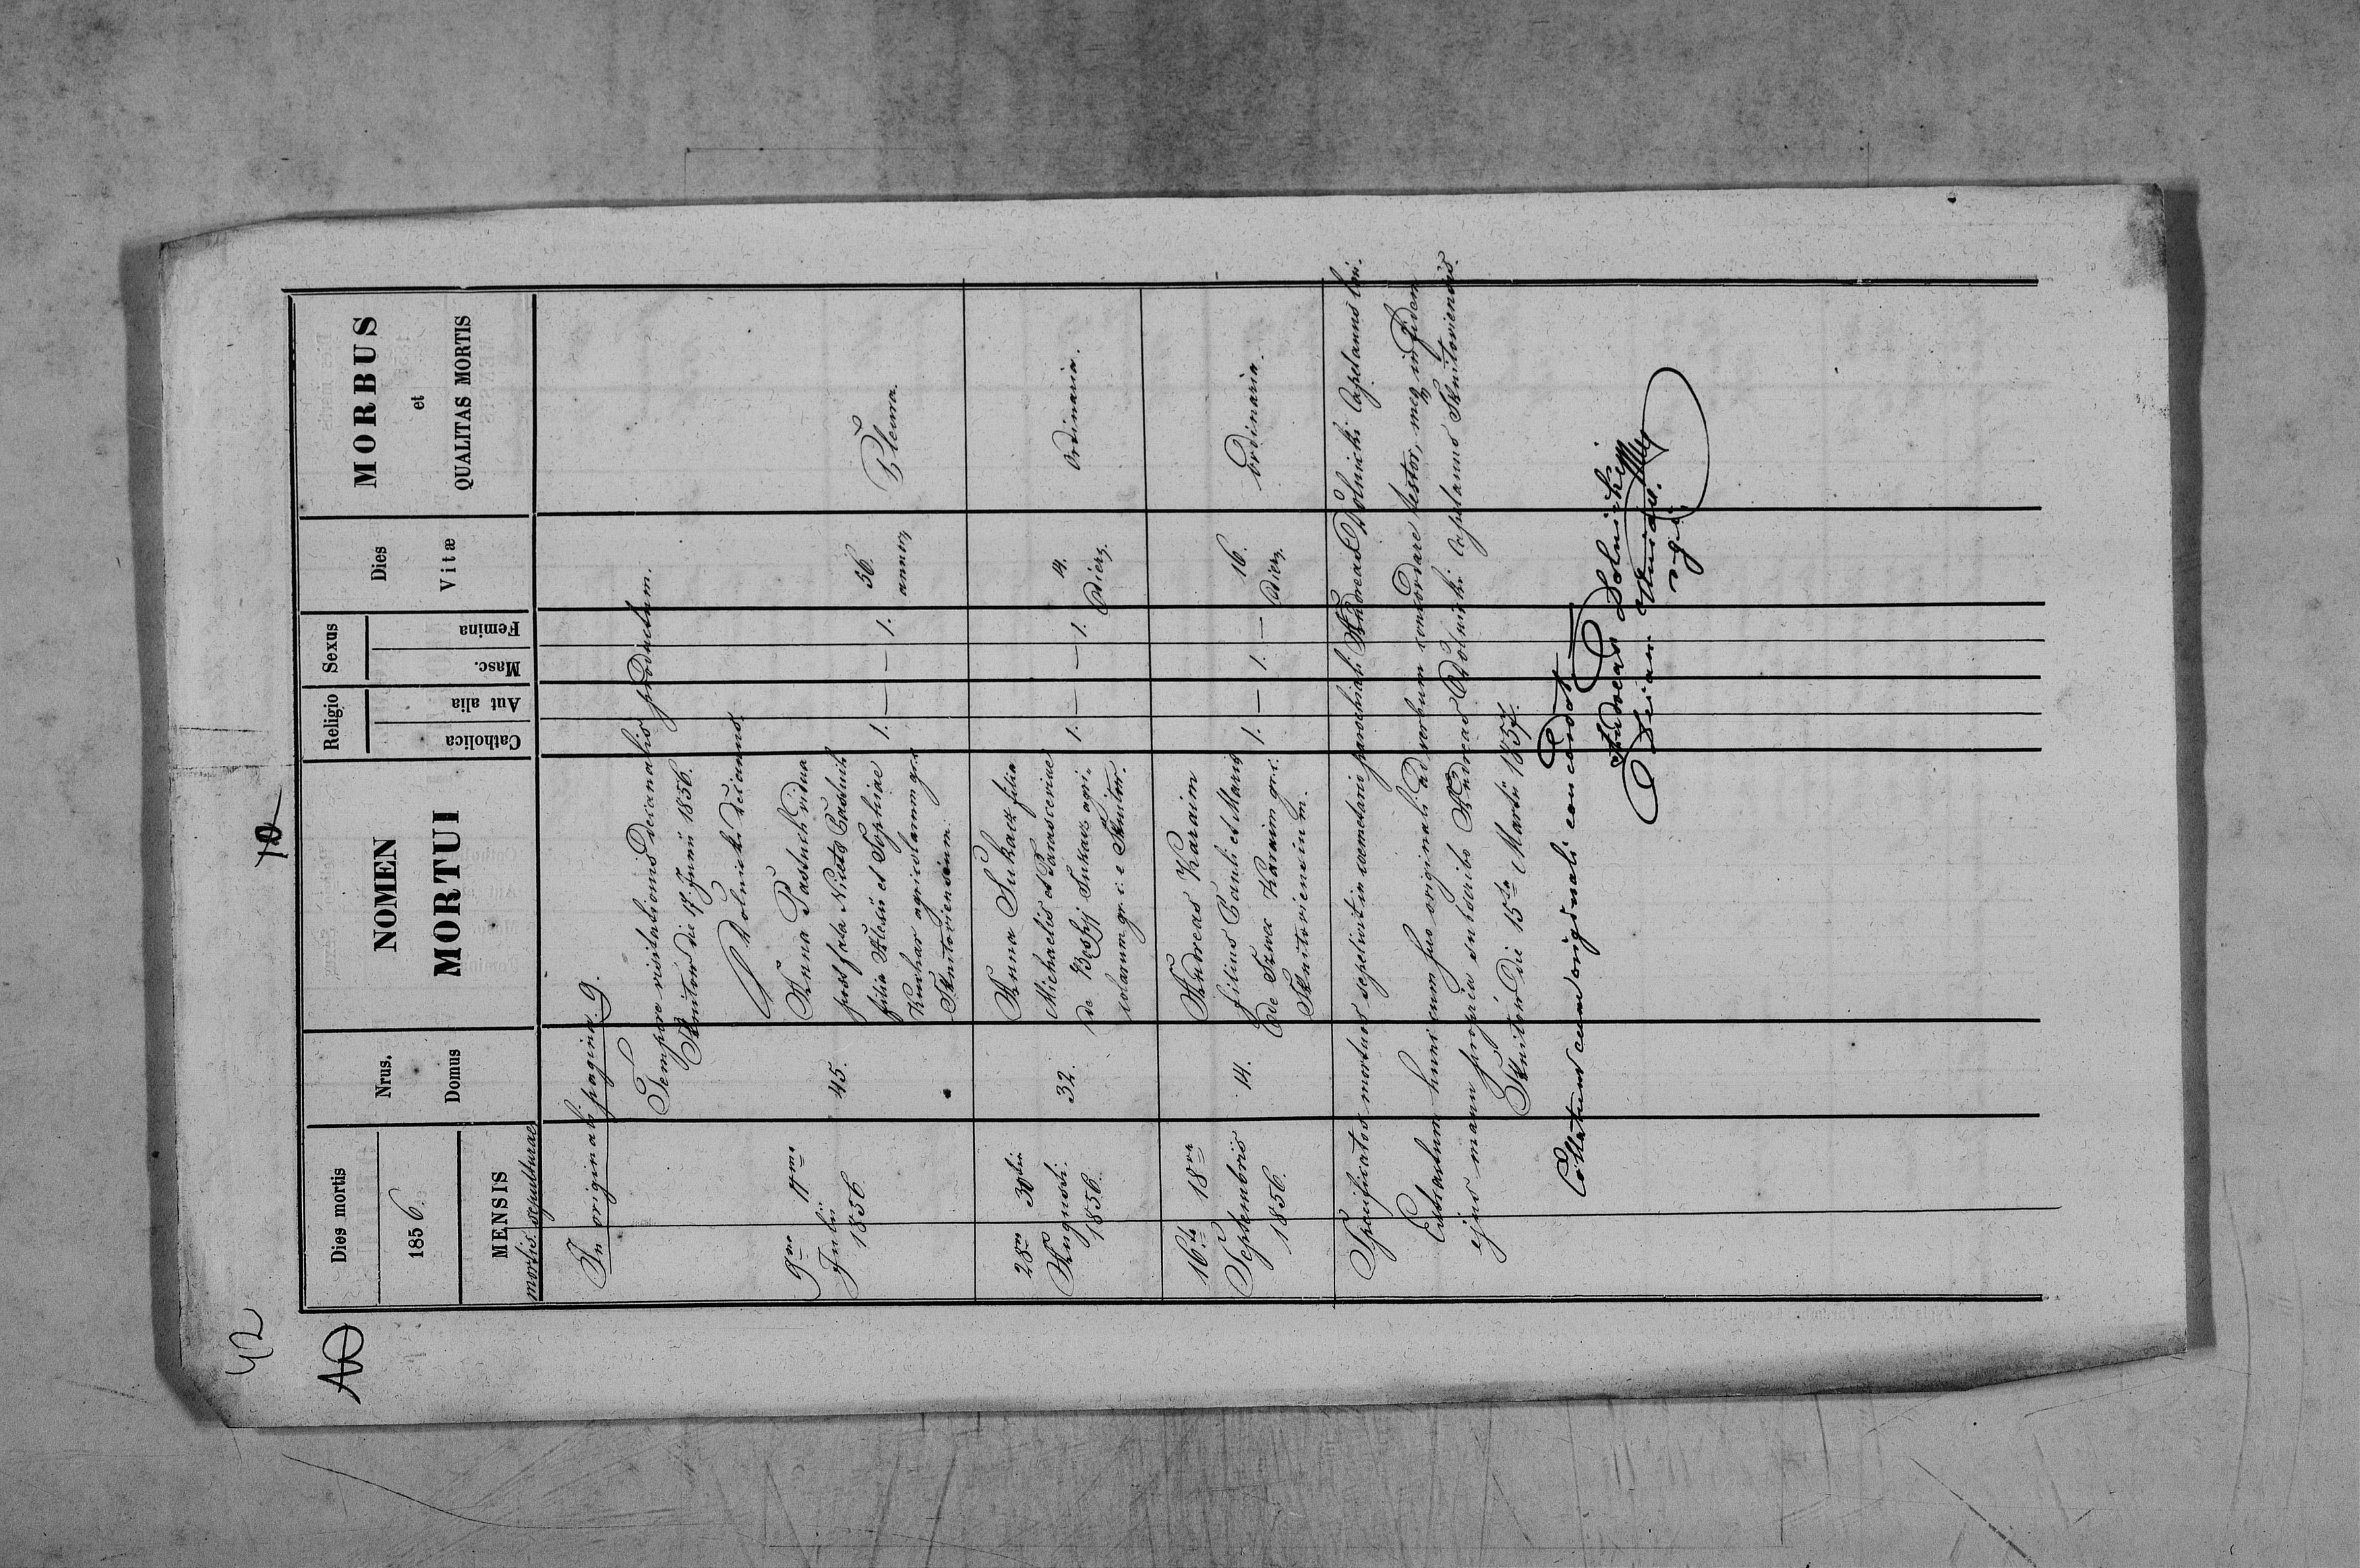 42
10
Dies mortis
1856.
MENSIS
mortis. sepulturae
Nrus.
Domus
NOMEN
MORTUI
Religio
Catholica
Aut alia
Sexus
Masc.
Femina
Dies
Vitæ
MORBUS
et
QUALITAS MORTIS
In originali pagina 9.
Tempore visitationis Decanalis productum.
Sknitow die 17 Junii 1856.
Dolnicki decanus.
9na 11ma
Julii
1856.
45.
Anna Pastuch vidua
post fata Nicetae Pastuch
filia Alexii et Sophiae
Kuchar agricolarum gr.c.
Sknitoviensium.
1. — — 1.
56.
annorum
Pleura.
28va 30ma
Augusti.
1856.
32.
Anna Lukacz filia
Michaelis et Parasceviae
de Lukacz agri-
colarum gr. c. e Sknitow.
1. — — 1.
14.
Dierum.
Ordinaria.
16ta 18va
Septembris
1856.
14.
Andreas Karaim
filius Pauli et Maria
de Szwec Karaim gr. c.
Sknitoviensium.
1. — 1. —
16.
Dierum.
ordinaria.
Specificatos mortuos sepelivit in coemeterio parochiali Andreas Dolnicki Capelanus loci.
Extractum hunc cum suo originali ad verbum concordare testor, meque in fidem
ejus manu propria subscribo Andreas Dolnicki Capelanus Sknitoviensis.
Sknitow die 15ta Martii 1857.
Collatum cum originali concordat
Andreas Dolnicki
Decan